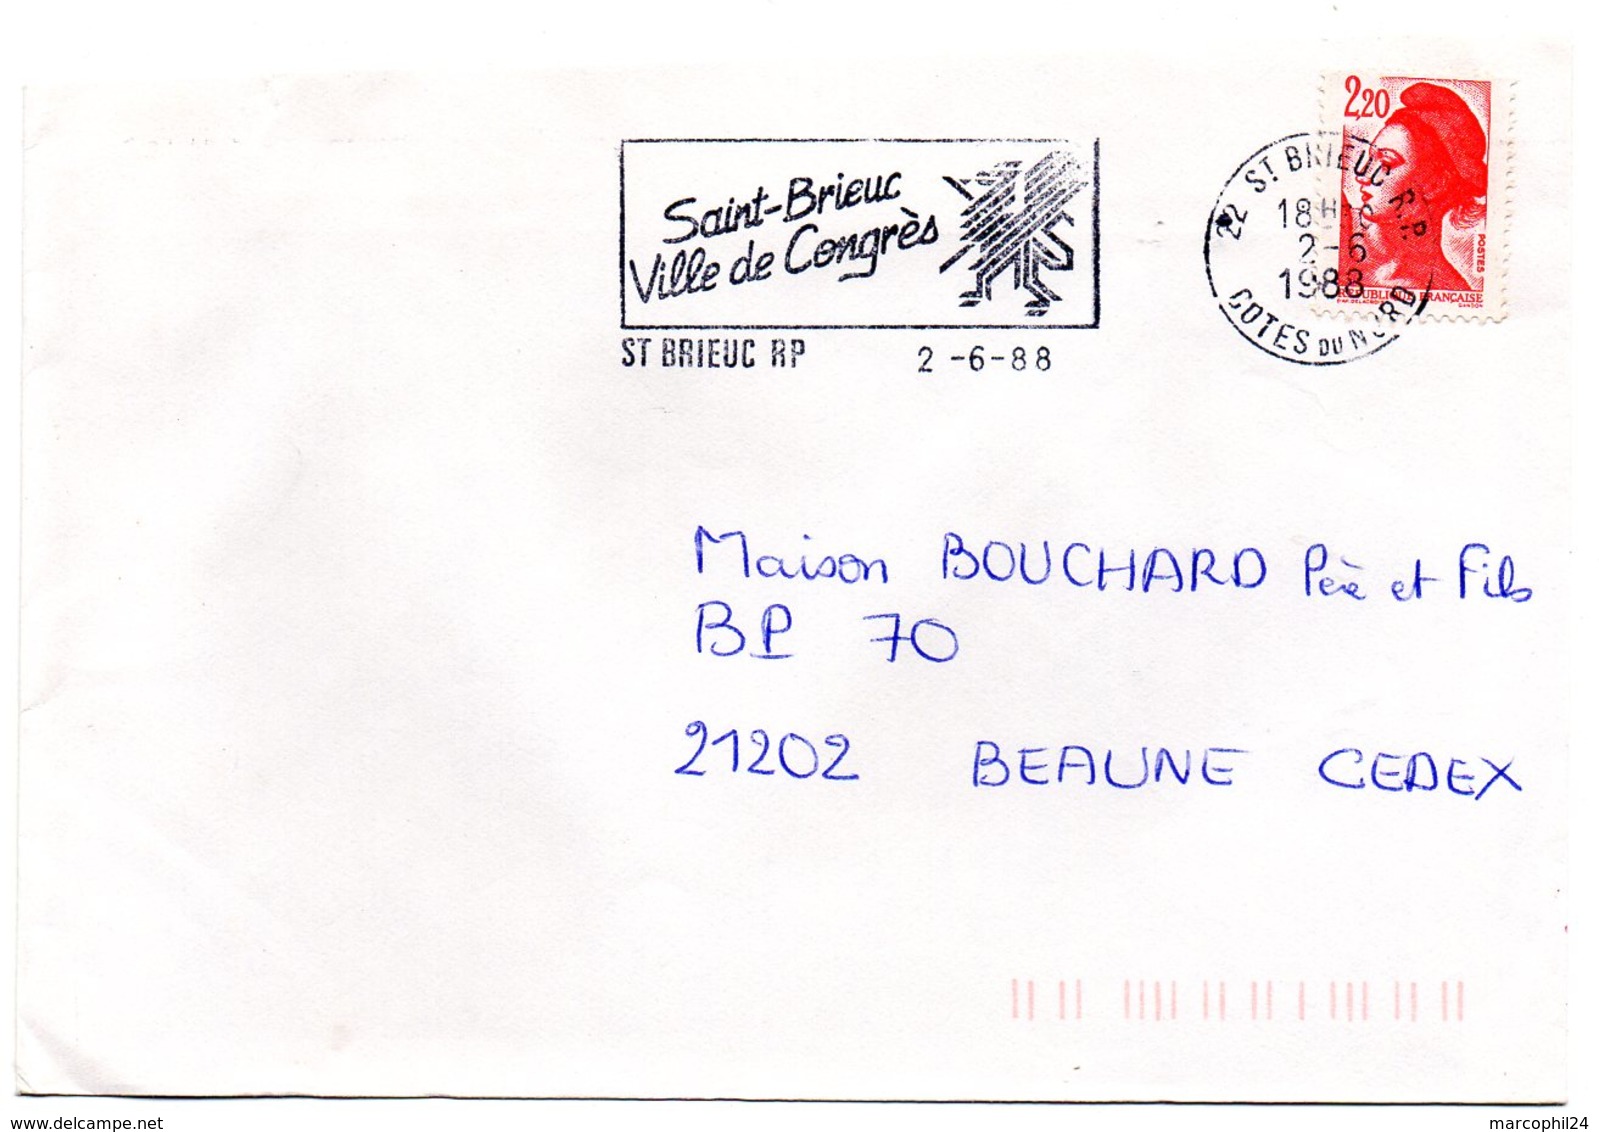 2,20
Saint-Brieuc
Ville de Congrès
ST BRIEUC RP 2 -6-88
22 ST BRIEUC R.P.
18H
2-6
1988
COTES DU NORD
POSTES
REPUBLIQUE FRANÇAISE
Maison BOUCHARD Père et Fils
BP 70
21202 BEAUNE CEDEX
www.delcampe.net
marcophil24